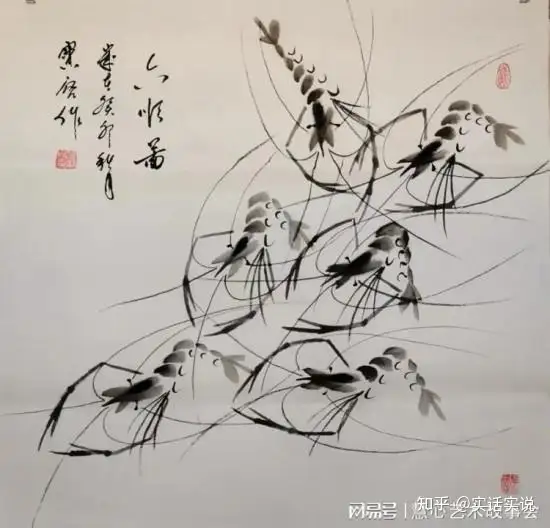 六顺图
岁在癸卯秋月
作
网易号 | 慧心艺术故事会
知乎 @实话实说